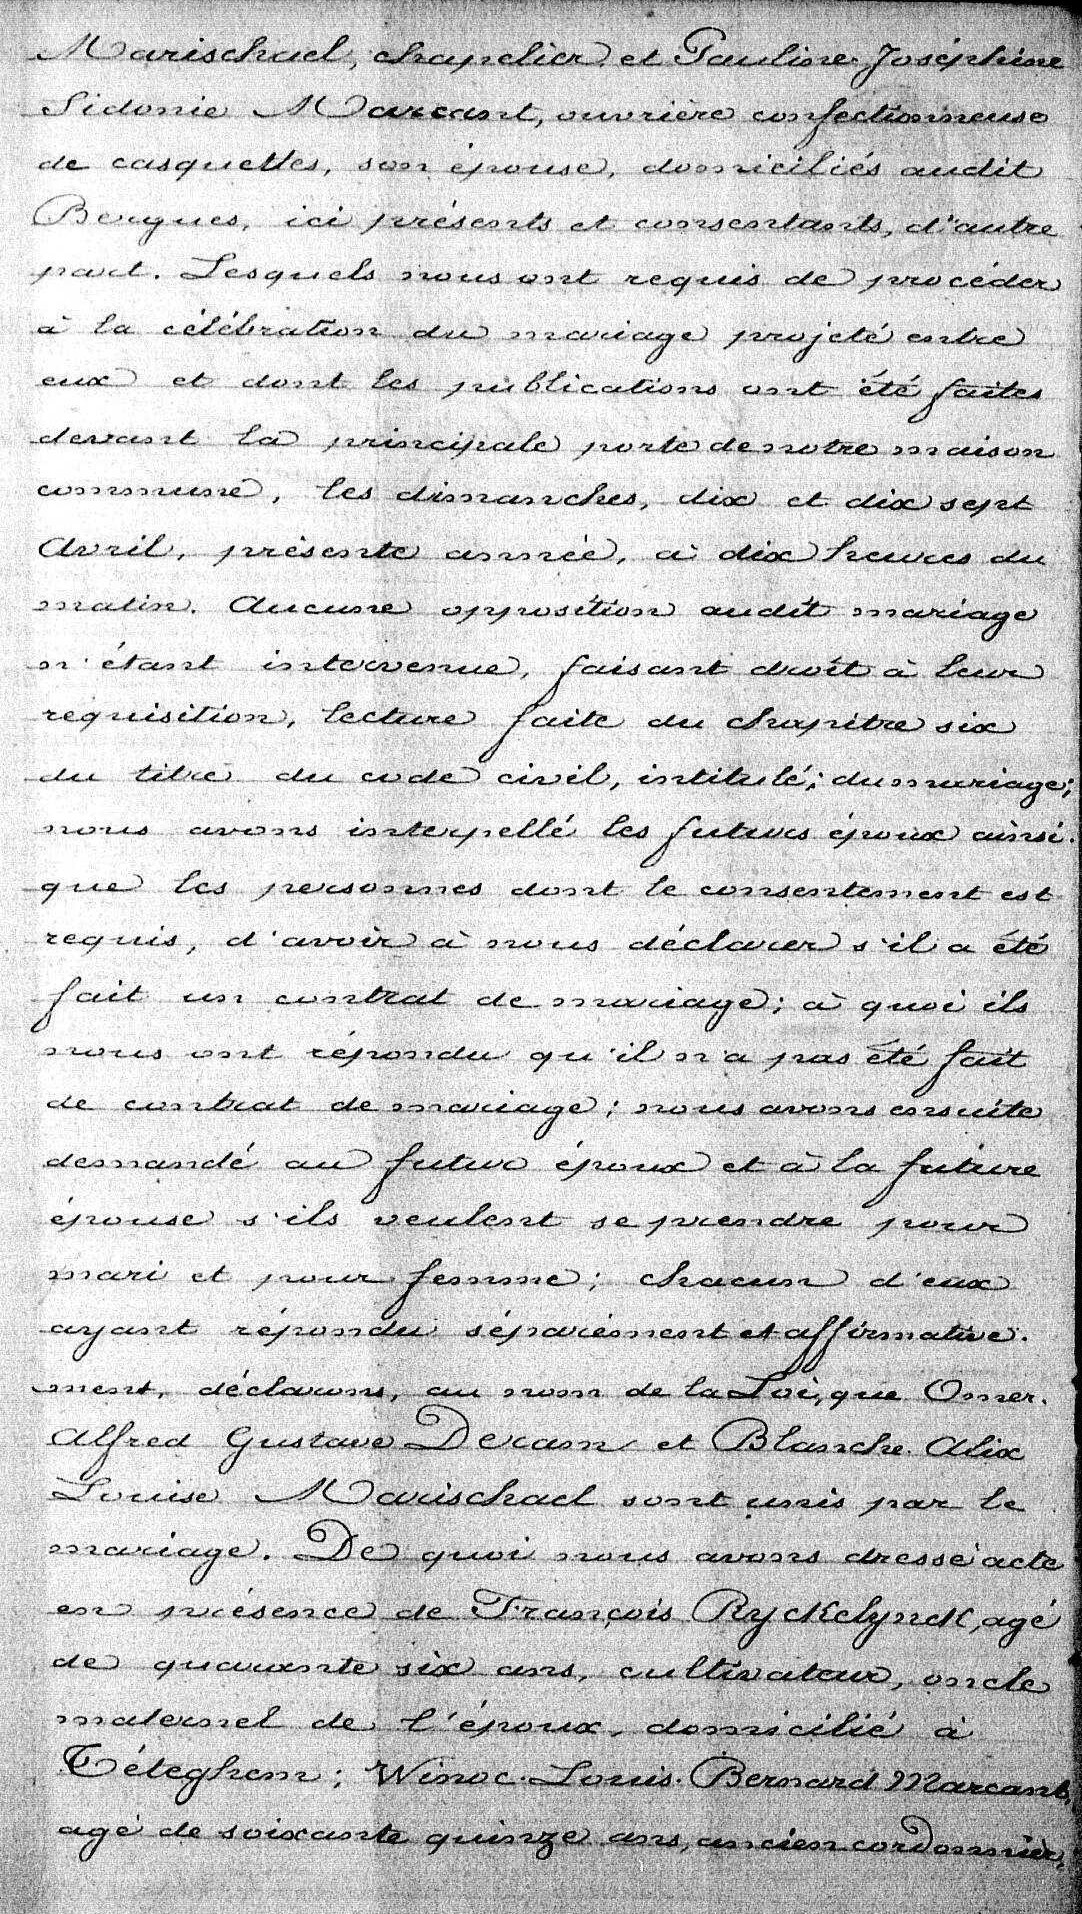 Marischael, chapelier et Pauline Joséphine
Sidonie Marcant, ouvrière confectionneuse
de casquettes, son épouse, domiciliés audit
Bergues, ici présents et consentants, d'autre
part. Lesquels nous ont requis de procéder
à la célébration du mariage projeté entre
eux et dont les publications ont été faites
devant la principale porte de notre maison
commune, les dimanches, dix et dix sept
Avril, présente année, à dix heures du
matin. Aucune opposition audit mariage
n'étant intervenue, faisant droit à leur
requisition, lecture faite du chapitre six
du titre du code civil, intitulé; du mariage;
nous avons interpellé les futurs époux ainsi.
que les personnes dont le consentement est
requis, d'avoir à nous déclarer s'il a été
fait un contrat de mariage; à quoi ils
nous ont répondu qu'il n'a pas été fait
de contrat de mariage; nous avons ensuite
demandé au futur époux et à la future
épouse s'ils veulent se prendre pour
mari et pour femme; chacun d'eux
ayant répondu séparément et affirmative.
ment, déclarons, au nom de la Loi, que Omer.
Alfred Gustave Decam et Blanche Alix
Louise Marischael sont unis par le
mariage. De quoi nous avons dressé acte
en présence de François Ryckelynck, agé
de quarante six ans, cultivateur, oncle
maternel de l'époux, domicilié à
Téteghem; Winoc. Louis. Bernard Marcant,
agé de soixante quinze ans, ancien cordonnier,